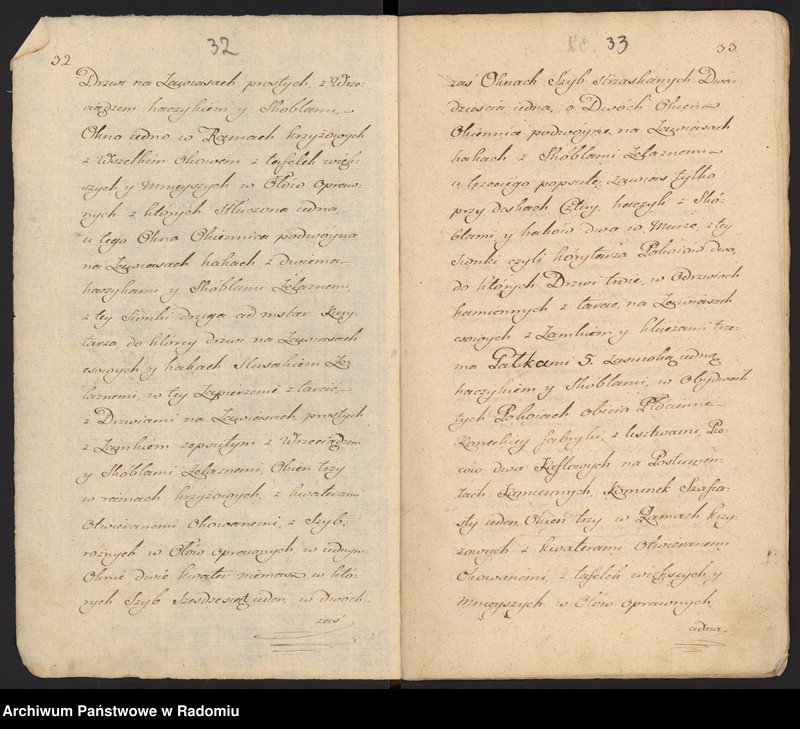 32
32
Drzwi na Zawiasach prostych, z Wrze-
ciądzem haczykiem y Skoblami,
Okno iedno w Ramach krzyżowych
z Wszelkim Okowem z tafelek więk-
szych y mnieyszych w Ołów opraw-
nych z których stłuczona iedna,
u tego Okna Okiennica podwoyna
na Zawiasach hakach z dwiema
haczykami y Skoblami Żelaznemi,
z tey Sionki druga ad instar Kury-
tarza do którey drzwi na Zawiasach
esowych y hakach Slusakiem Że-
laznemi, w tey Zapierzenie z tarcic
z Drzwiami na Zawiasach prostych
z Zamkiem zepsutym z Wrzeciądzem
y Skoblami Żelaznemi, Okien trzy
w ramach krzyżowych, z kwaterami
Otwieranemi Okowanemi, z Szyb
rożnych w Ołów oprawnych, w iednym
Oknie dwie kwater niemasz w któ-
rych Szyb Szesdziesiąt ieden, w dwoch
zaś
33
33
zaś Oknach Szyb strzaskanych Dwa-
dzieścia iedna, o Dwóch Okien
Okiennice podwoyne na Zawiasach
hakach z Skóblami Żelaznemi
u trzeciego popsute, Zawias tylko
przy doskach Cztery, haczyk z Skó-
blami y haków dwa w Murze, z tey
Sionki czyli kórytarza Pokoiow dwa,
do których Drzwi troie, w Odrzwiach
kamiennych z tarcic, na Zawiasach
esowych z Zamkiem y kluczami trze-
ma Gałkami 5. Zasuwką iedną
haczykiem y Skoblami, w Obydwoch
tych Pokoiach obicia Płócienne
Koneckiey fabryki, z lisztwami, Pie-
ców dwa Kaflowych na Postumen-
tach Kamiennych, Kominek Szafia-
sty ieden Okien trzy w Ramach krzy-
żowych z kwaterami Otwieranemi
Okowanemi, z tafelek większych y
mnieyszych w Ołów oprawnych,
iedna
Archiwum Państwowe w Radomiu